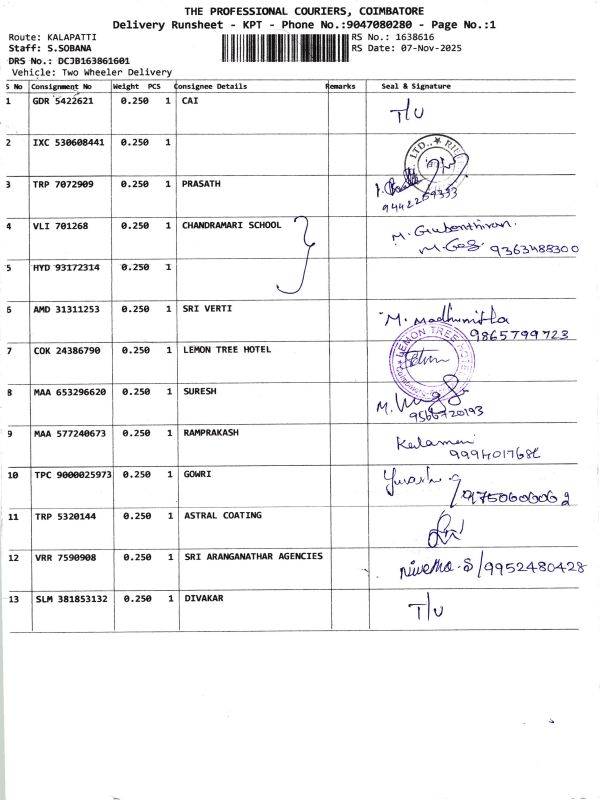 THE PROFESSIONAL COURIERS, COIMBATORE
Delivery Runsheet - KPT - Phone No.:9047080280 - Page No.:1
Route: KALAPATTI RS No.: 1638616
Staff: S.SOBANA RS Date: 07-Nov-2025
DRS No.: DCJB163861601
Vehicle: Two Wheeler Delivery
S No Consignment No Weight PCS Consignee Details Remarks Seal & Signature
1 GDR 5422621 0.250 1 CAI T/U
2 IXC 530608441 0.250 1 LTD.,
3 TRP 7072909 0.250 1 PRASATH
9442259333
4 VLI 701268 0.250 1 CHANDRAMARI SCHOOL M. Gubenthiran.
9363488300
5 HYD 93172314 0.250 1
6 AMD 31311253 0.250 1 SRI VERTI M. Madhumitha
9865799723
7 COK 24386790 0.250 1 LEMON TREE HOTEL LEMON TREE HOTEL
8 MAA 653296620 0.250 1 SURESH M.
9566720193
9 MAA 577240673 0.250 1 RAMPRAKASH
10 TPC 9000025973 0.250 1 GOWRI
11 TRP 5320144 0.250 1 ASTRAL COATING
12 VRR 7590908 0.250 1 SRI ARANGANATHAR AGENCIES Nivetha.S/9952480428
13 SLM 381853132 0.250 1 DIVAKAR T/U